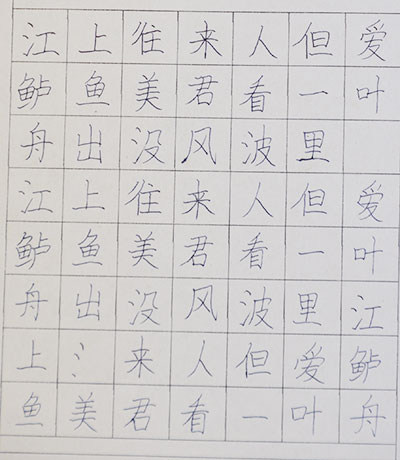 江上往来人但爱
鲈鱼美君看一叶
舟出没风波里
江上往来人但爱
鲈鱼美君看一叶
舟出没风波里江
上氵来人但爱鲈
鱼美君看一叶舟